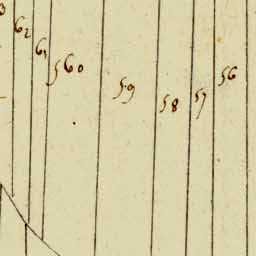 62
61
560
59
58
57
56